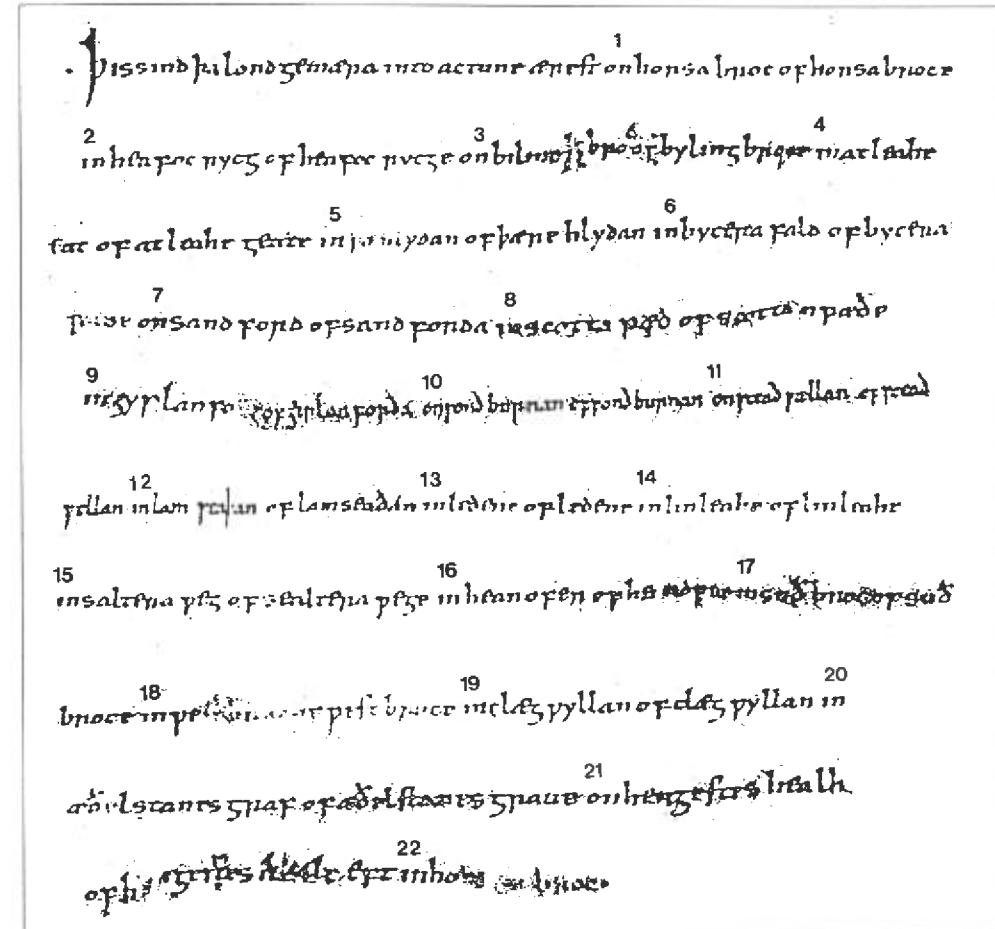 Þis sind þa lond gemæra into actune ærest on 1 honsa broc of honsa broce
2 in heafoc rycg of heafoc rycge 3 on byling broc 6 of byling broce 4 in at leahe
gat of at leahe geate 5 in þa hlydan of þære hlydan 6 in bycera fald of bycera
falde 7 on sand ford of sand forda 8 in scotta pæð of scotta paðe
9 in gyrlan ford of gyrlan forda 10 on fond burnan of fond burnan 11 on stead wellan of stead
wellan 12 in lam seaðan of lam seaðan 13 in ledene of ledene 14 in linleahe of linleahe
15 in saltera weg of sealtera wege 16 in hean ofer of hean ofre 17 in suð broc of suð
broce 18 in west broc of west broce 19 in clæg wyllan of clæg wyllan 20 in
æðelstanes graf of æðelstanes graue 21 on hengestes healh
of hengestes heale eft 22 in honsa broc